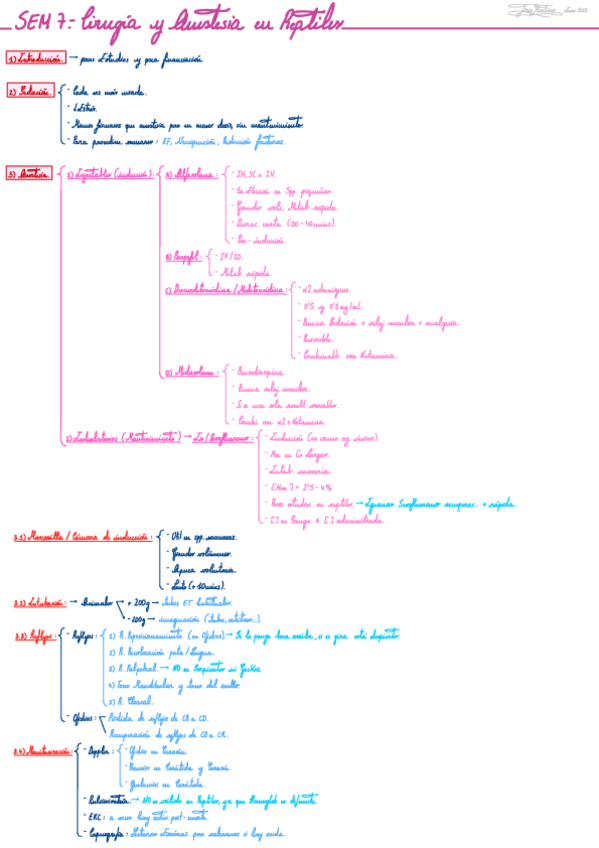 SEM 7.- Cirugía y Anestesia en Reptiles
1) Introducción → pocos Estudios y poca financiación.
2) Sedación.
- Cada vez más usada.
- ↓Estrés.
- Mismos fármacos que anestesia pero en menor dosis, sin mantenimiento.
- Para procedim. menores: EF, Venopunción, Reducción fracturas.
3) Anestesia.
1) Inyectables (inducción):
A) Alfaxalona:
- IM, SC o IV.
- De elección en Spp pequeñas.
- Metab. rápida.
- Durac. corta (30-40mins).
- Pre-inducción.
B) Propofol:
- IV/IO.
- Metab. rápida.
C) Dexmedetomidina / Medetomidina:
- α2 adrenérgicos.
- 0'5 y 0'1 mg/mL.
- Buena Sedación + relaj. muscular + analgesia.
- Reversible.
- Combinable con Ketamina.
D) Midazolam:
- Benzodiacepina.
- Buena relaj. muscular.
- Si se usa solo result. variables.
- Comb. con α2 + Ketamina.
2) Inhalatorios (Mantenimiento) → Iso/Sevofluorano:
- Inducción
- No en Cx largas.
- Intub. necesaria.
- = 2'5-4%
- Pocos estudios en reptiles. → Iguanas Sevofluorano recuperac. + rápida.
- [ ] en Sangre ≠ [ ] administrada.
3.1) Mascarilla / Cámara de inducción:
- Útil en spp.
- Grandes volúmenes.
- Apnea voluntaria.
- Lento (+30mins).
3.2) Intubación: → Animales
+200g → tubos ET
-200g → imaginación (tubos, catéteres...).
3.3) Reflejos:
- Reflejos:
1) R. Reposicionamiento (en Ofidios). → Si lo pongo boca arriba, si se gira está despierto.
2) R. Retracción pata/lengua.
3) R. Palpebral. → NO en Serpientes ni Geckos.
4) Tono Mandibular y tono del cuello.
5) R. Cloacal.
- Ofidios:
Pérdida de reflejos de CR a CD.
Recuperación de reflejos de CD a CR.
3.4) Monitorización:
- Doppler:
- Ofidios en Corazón.
- Saurios en Carótida y Corazón.
- Quelonios en Carótida.
- Pulsioximetría. → NO es válido en Reptiles, ya que Hemoglob es diferente.
- EKC: a veces hay activ. post-morte.
- Capnografía: